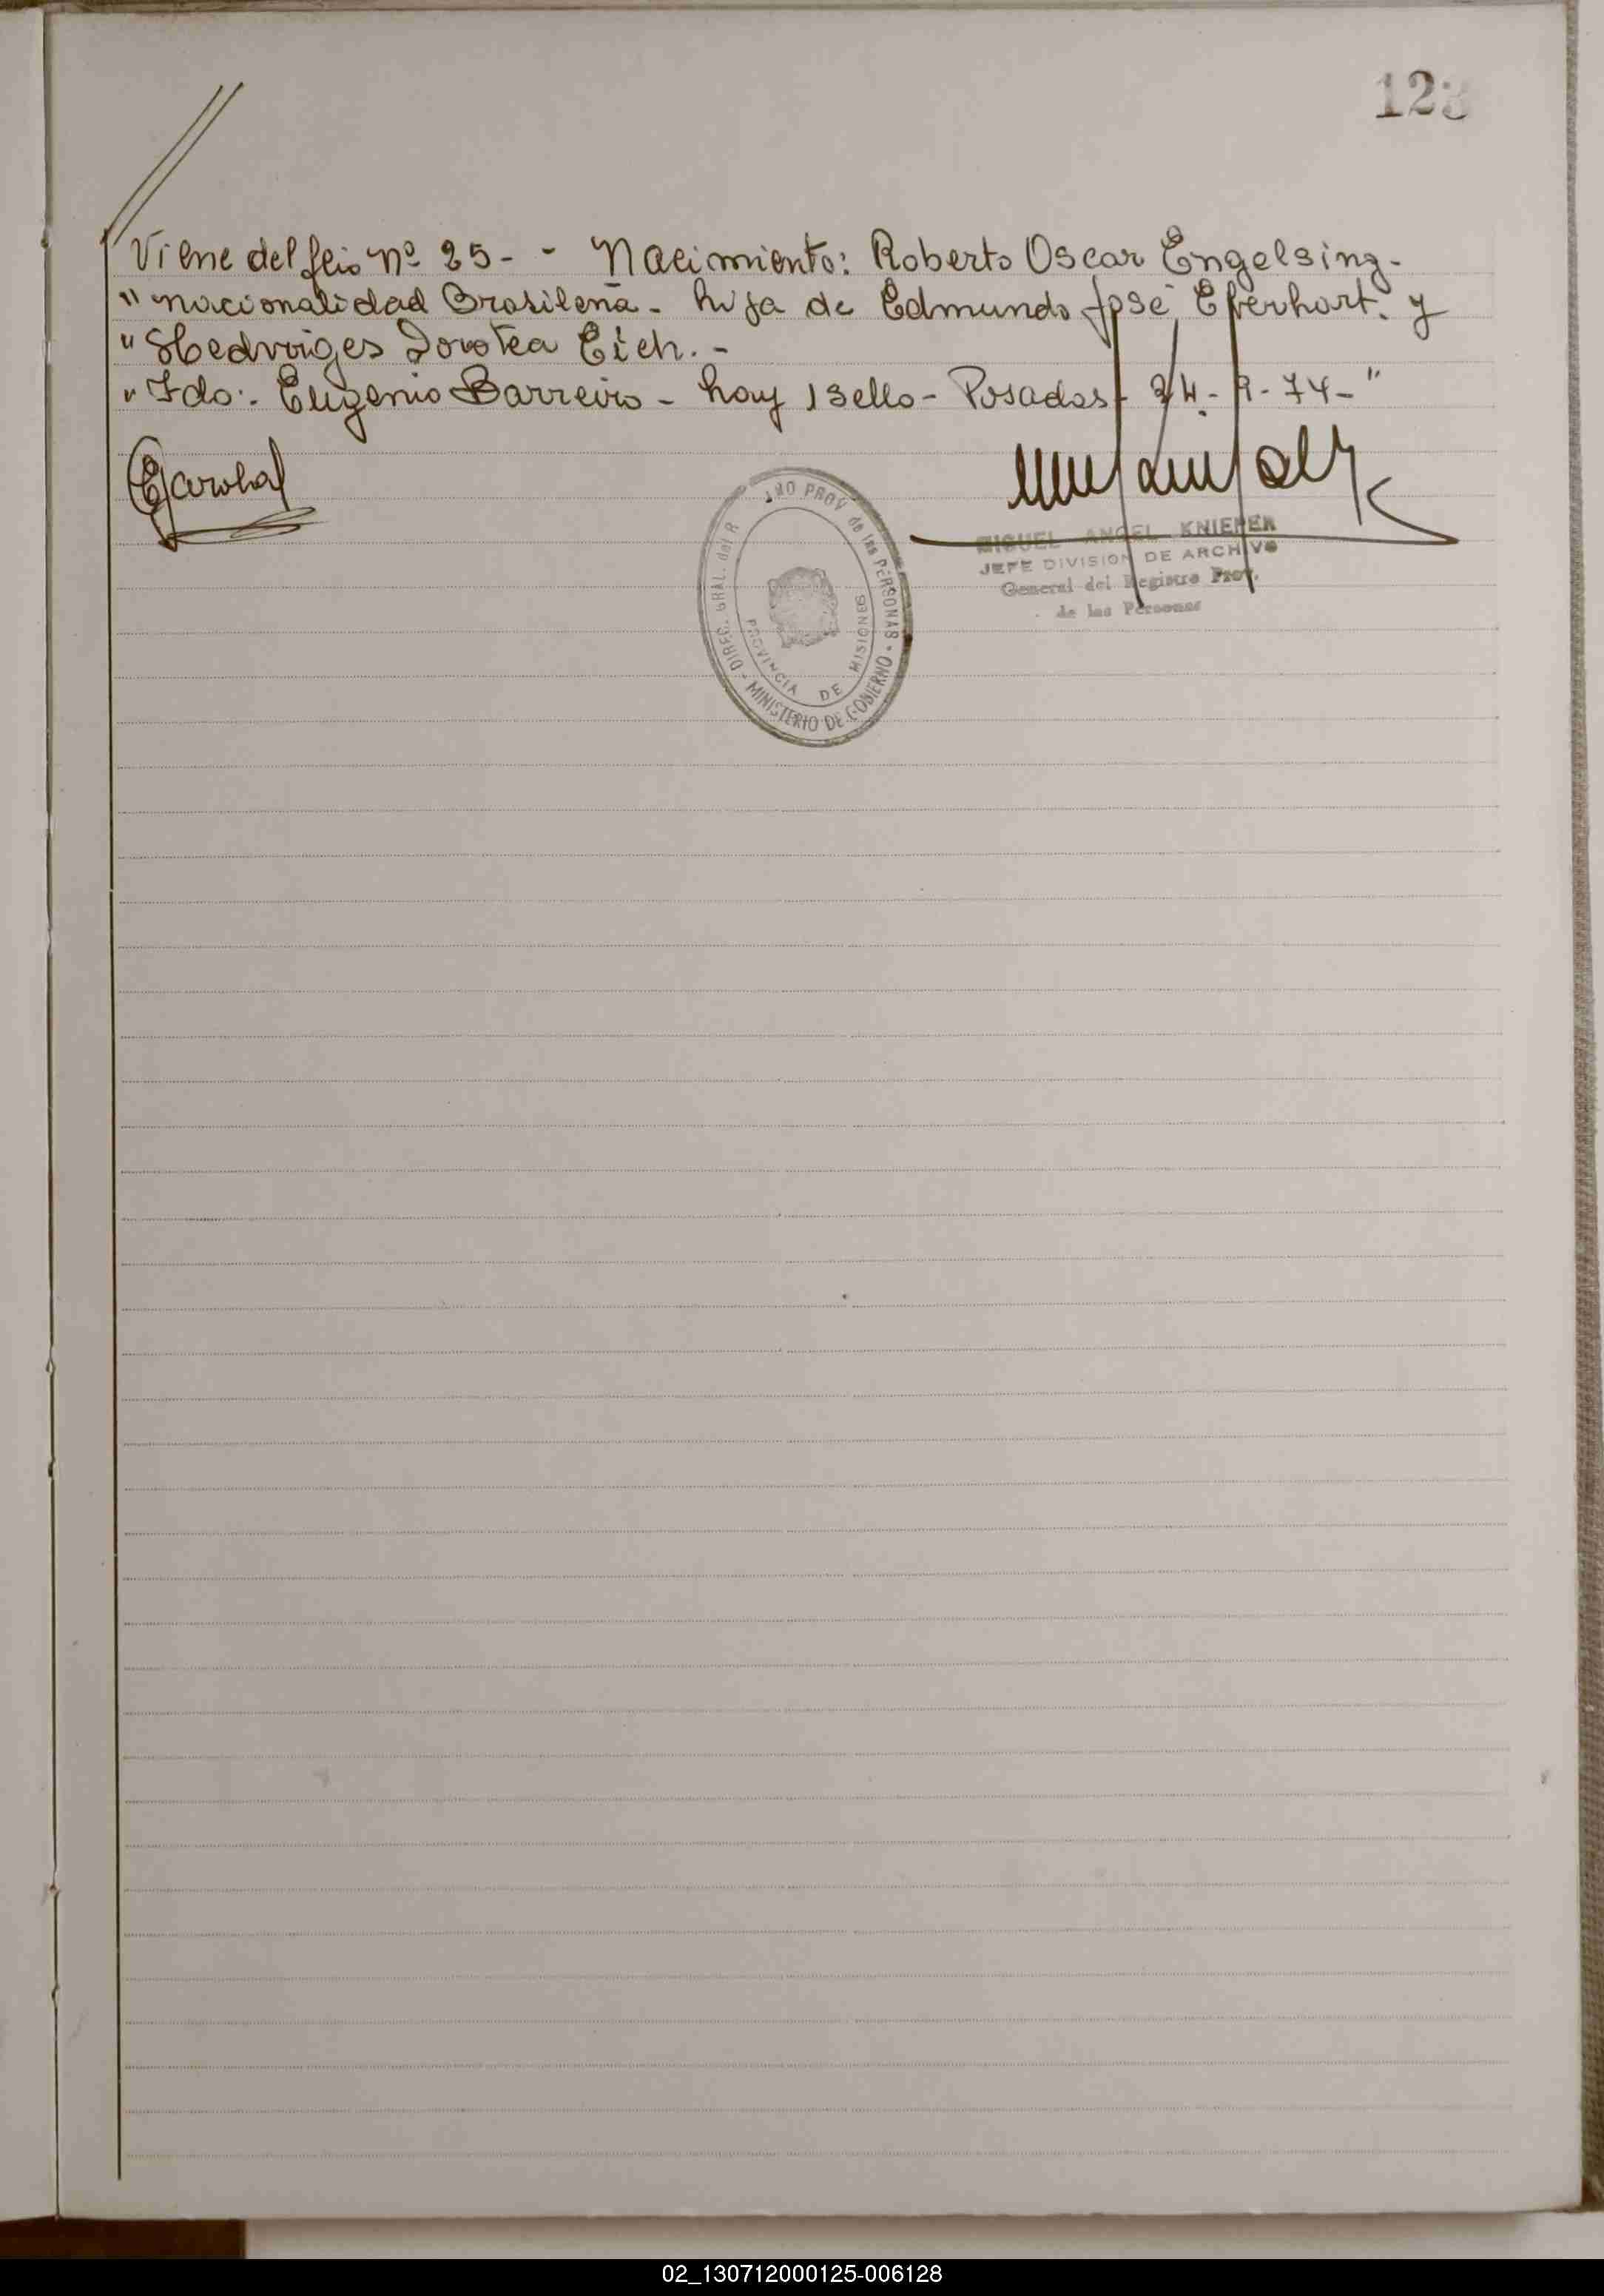 123
Viene del fº nº 25 - - Nacimiento: Roberto Oscar Engelsing.-
" nacionalidad Brasileña - hija de Edmundo José Eberhart. y
" Hedwiges Dorotea Eich. -
" Fdo:. Eugenio Barreiro - hay 1 sello - Posadas - 24 - 9 - 74 - "
DIREC. GRAL. del R PROV de las PERSONAS - MINISTERIO DE GOBIERNO -
PROVINCIA DE MISIONES
MIGUEL ANGEL KNIEPER
JEFE DIVISION DE ARCHIVO
General del Registro Prov.
de las Personas
02_130712000125-006128